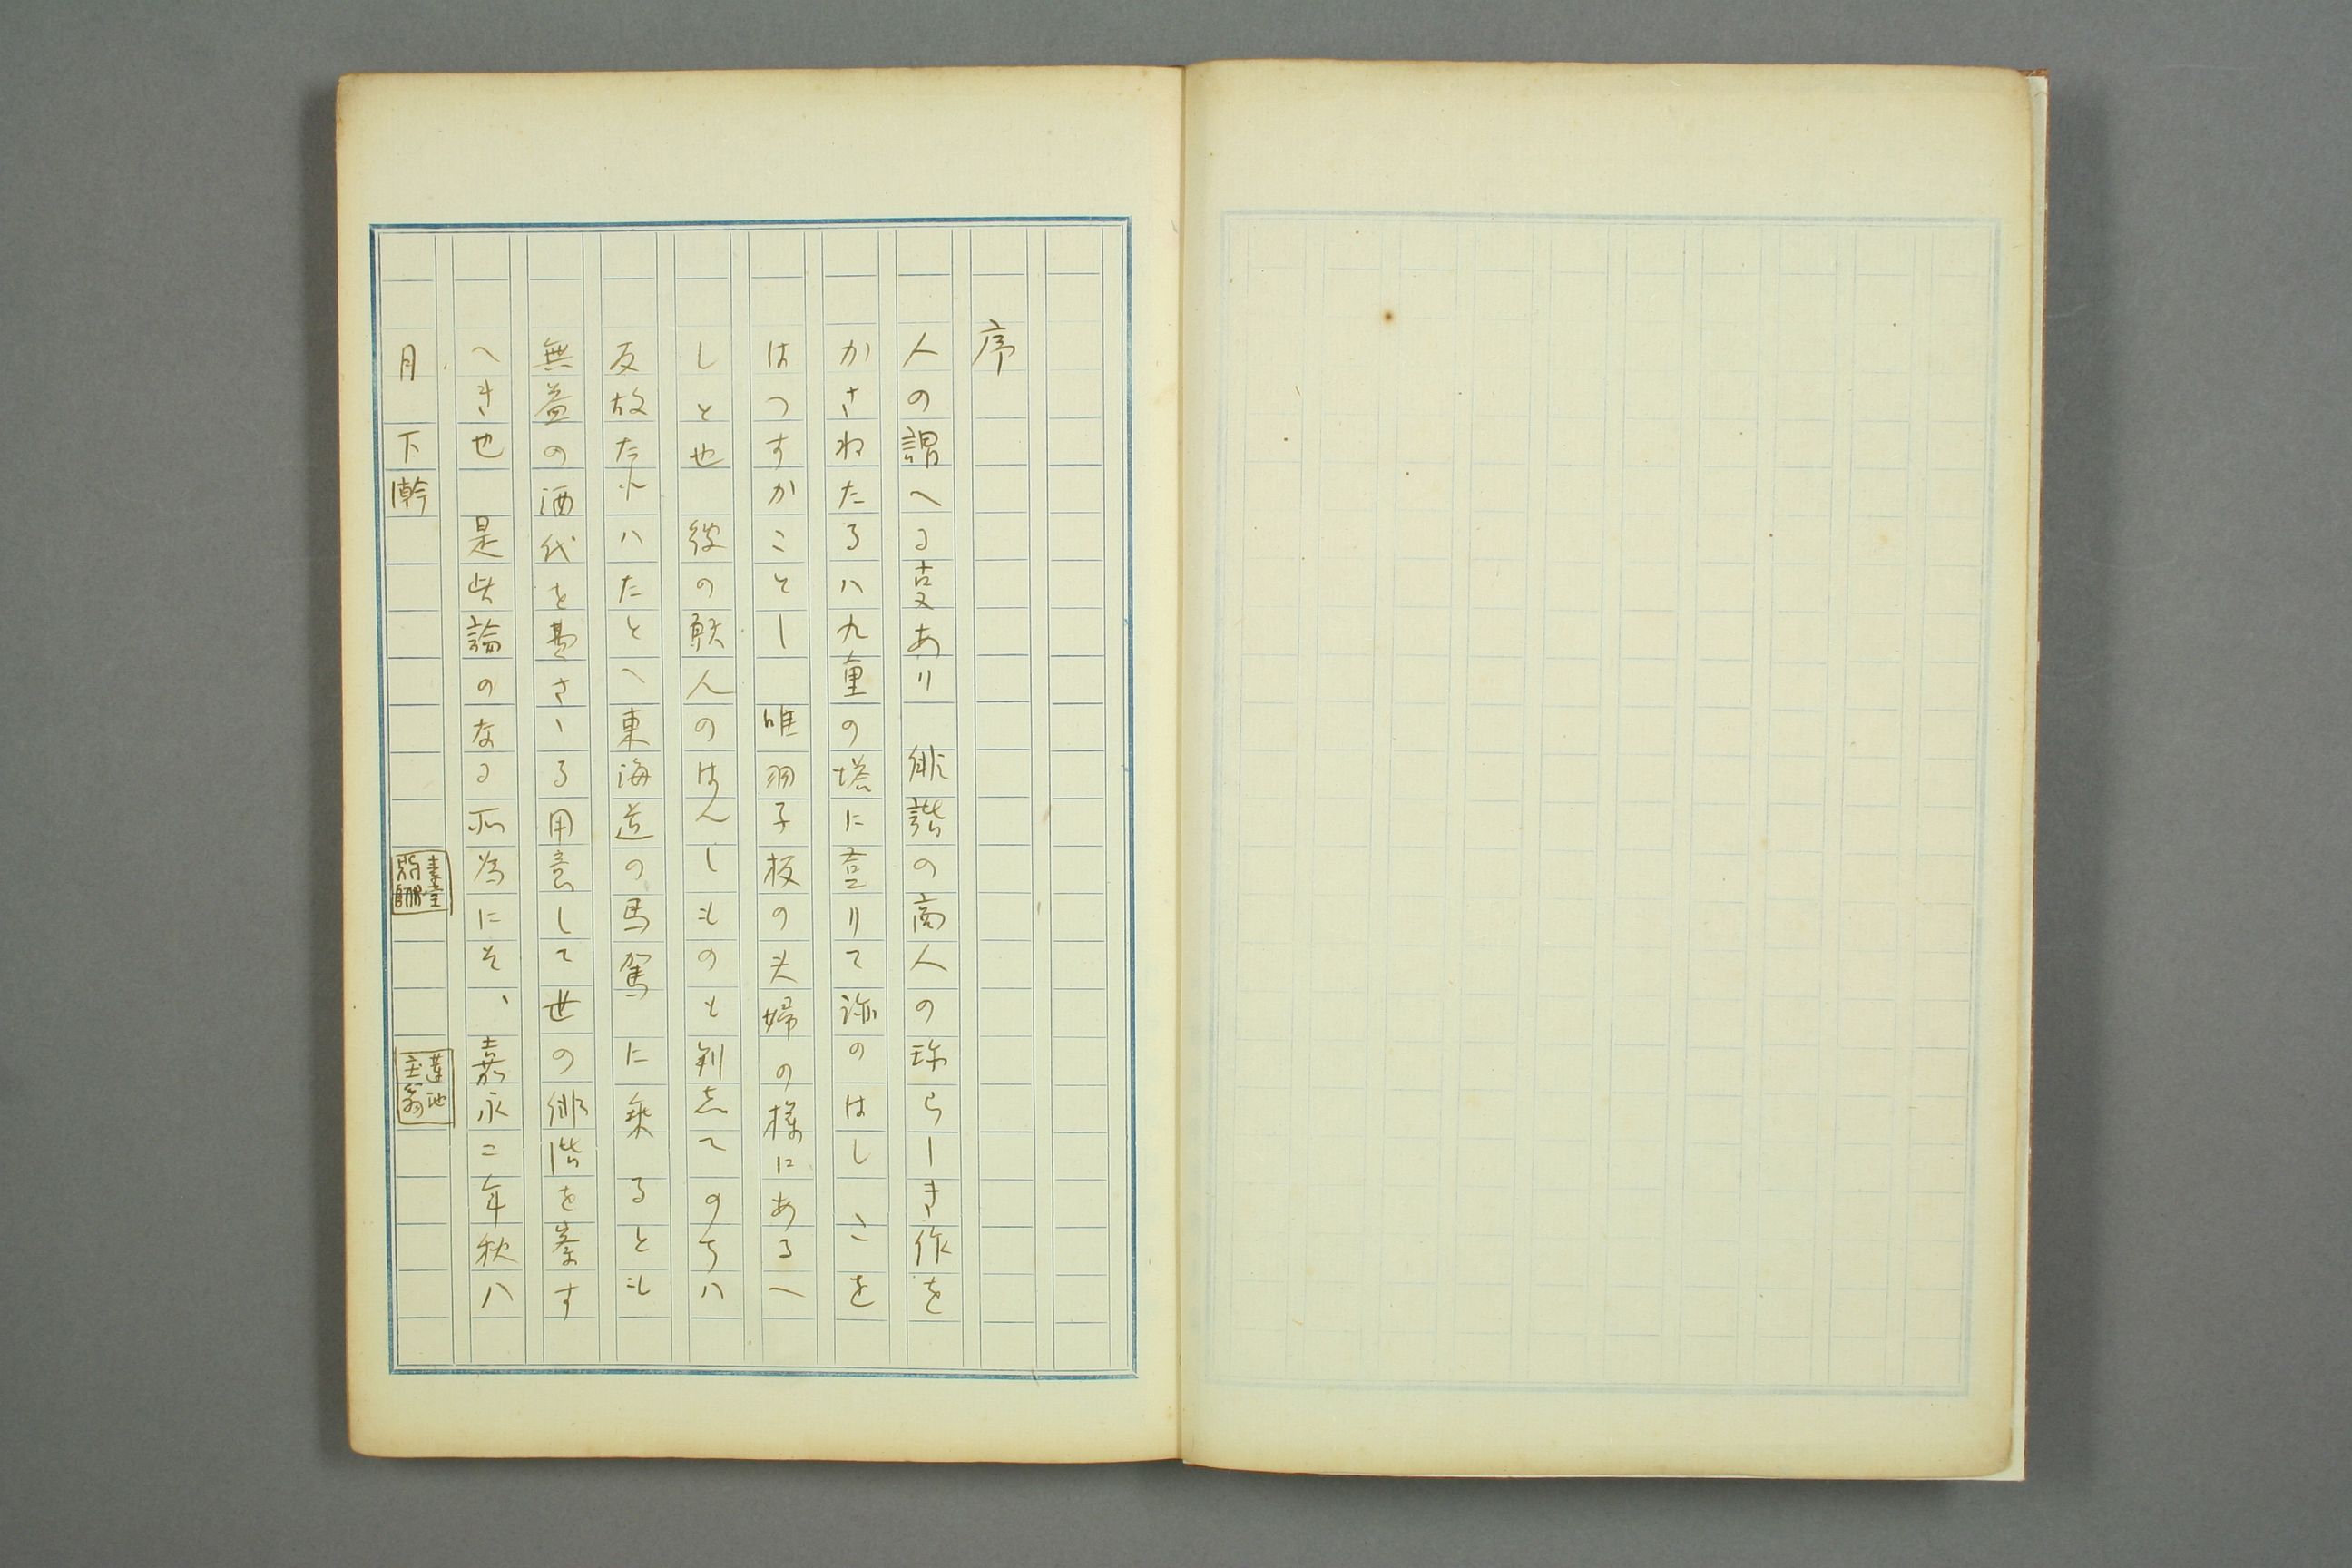 序
人の謂へる叓あり　俳諧の商人の珎らしき作を
かさねたるハ九重の塔に登りて跡のはしこを
はつすかことし　唯羽子板の夫婦の様にあるへ
しと也　彼の人のはんしものと判してのちハ
反故たれハたとへ東海道の馬駕に乗るとも
無益の酒代を費さゝる用意して世の俳諧を案す
へき也　是此論のなる所為にそ、嘉永二年秋八
月　下澣
蓮池
主翁